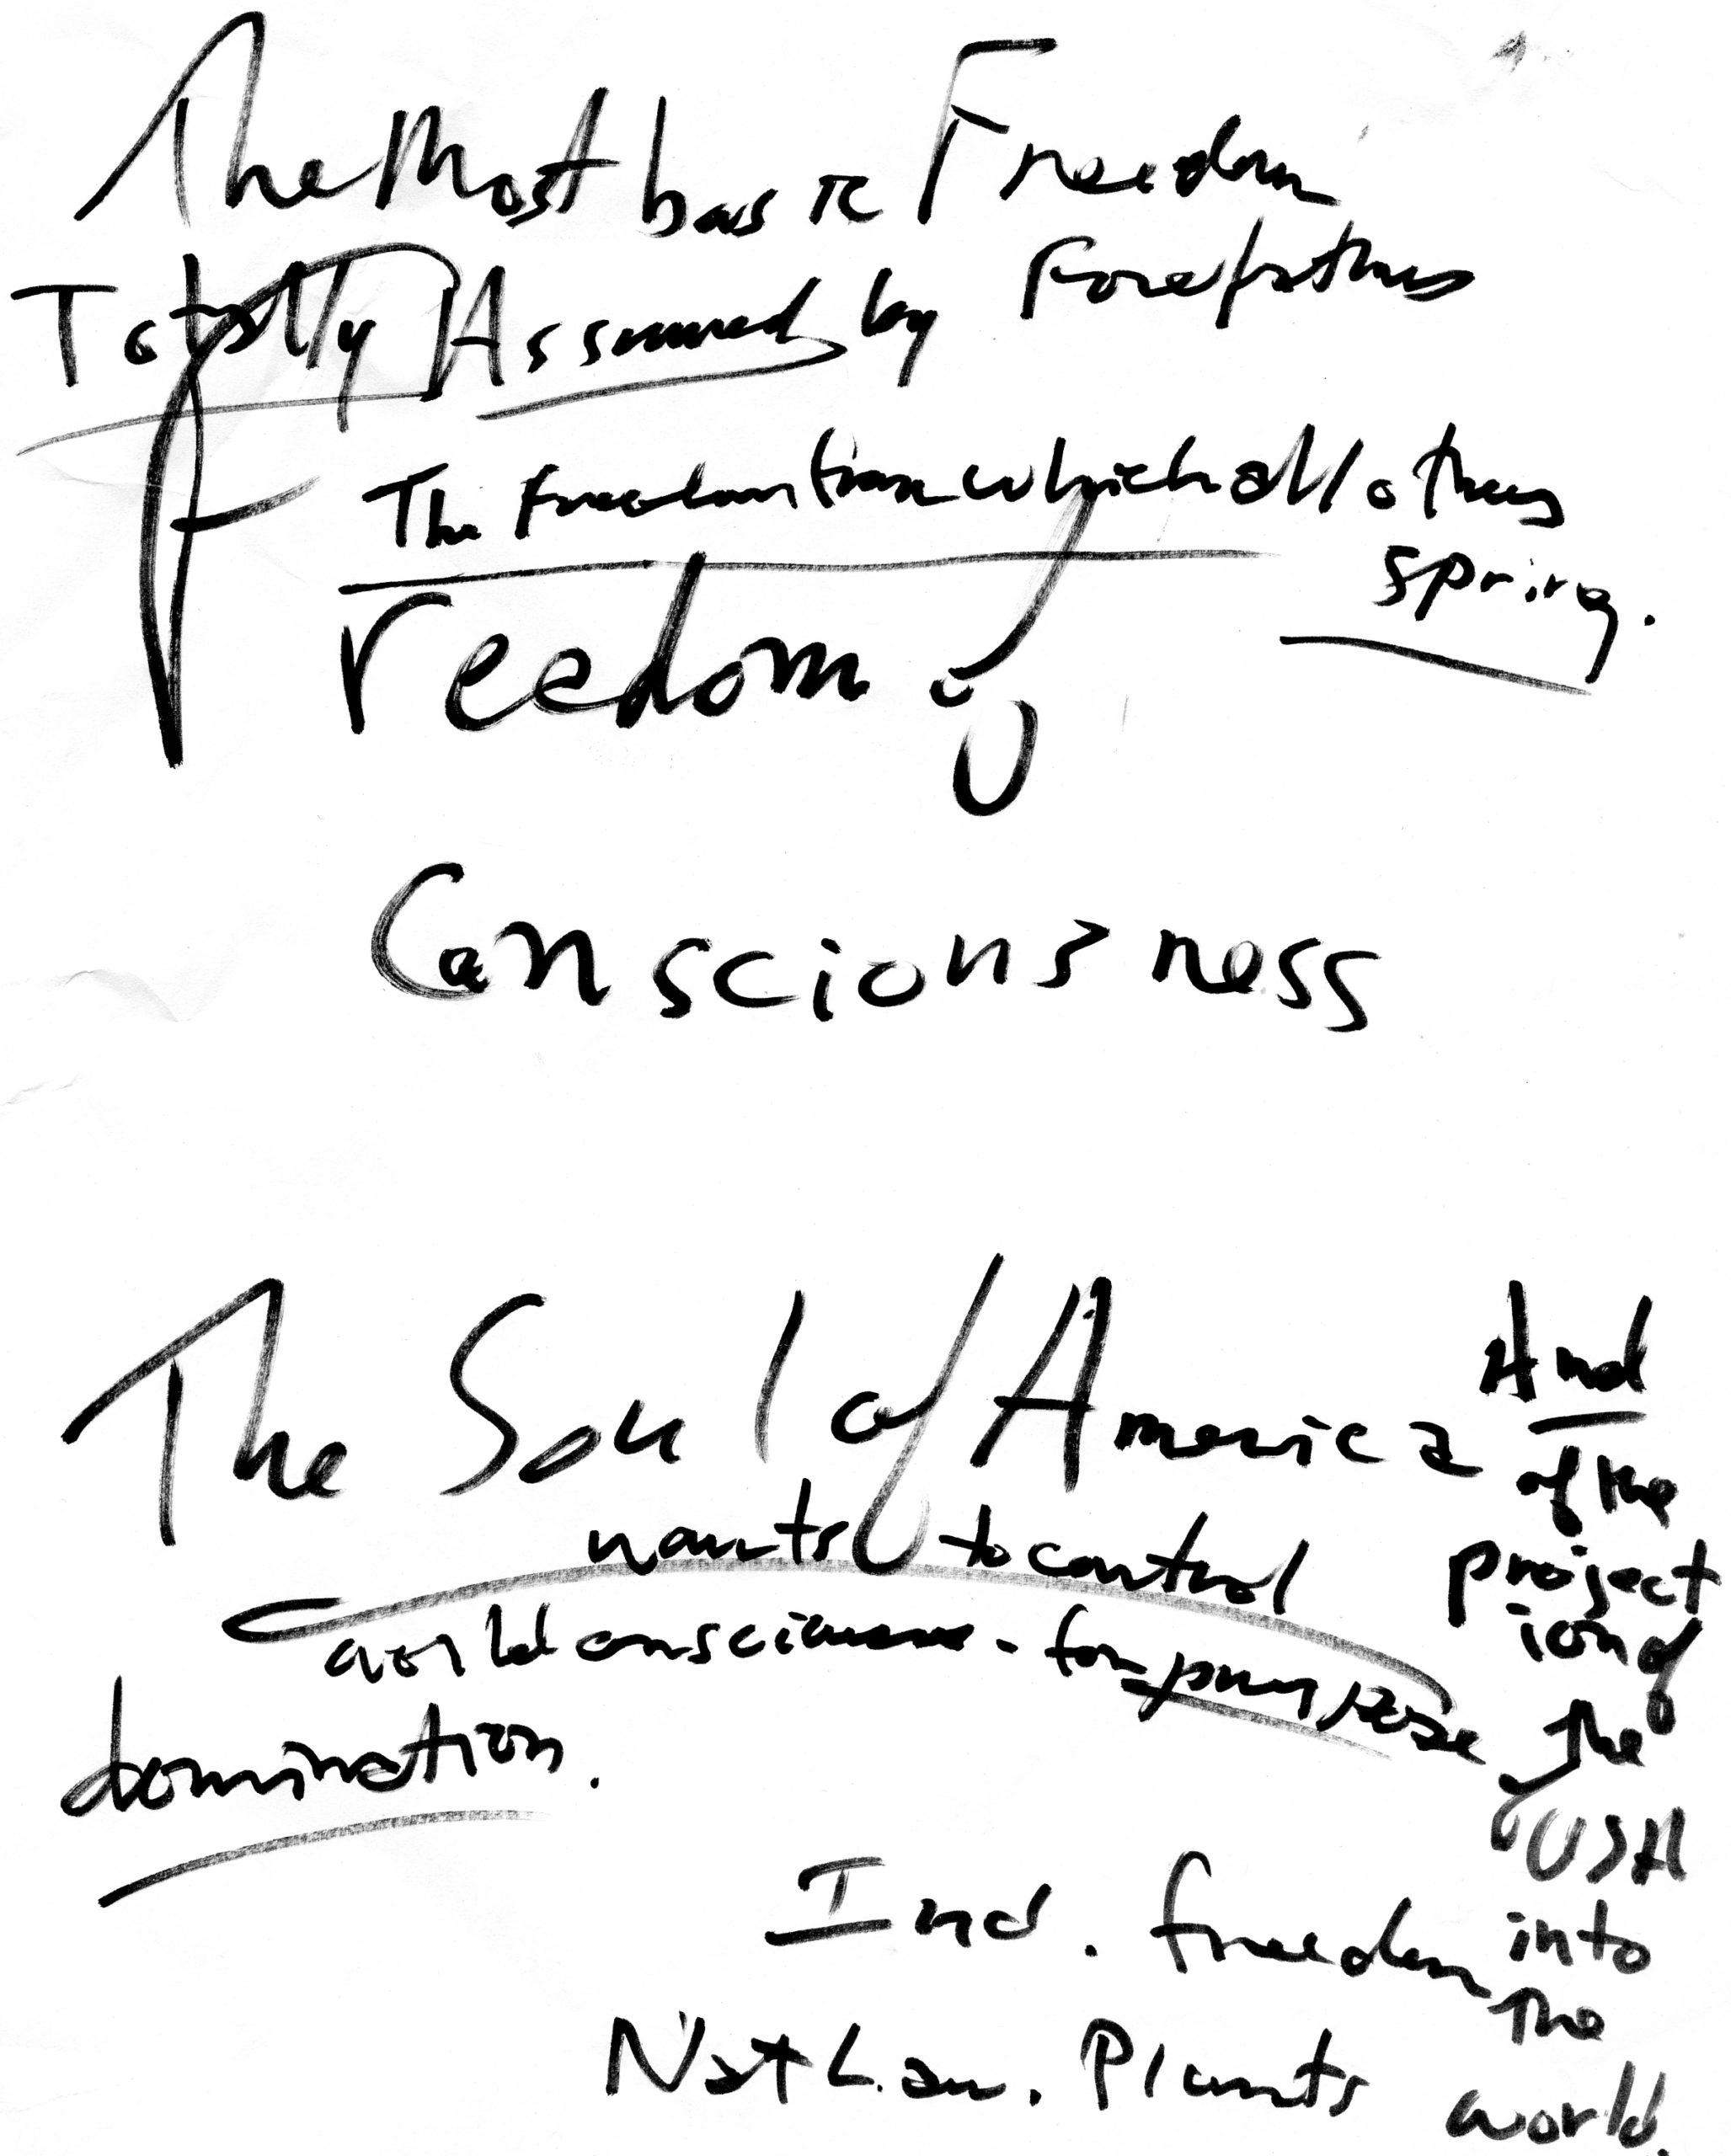 The Most basic Freedom
Totally Assumed by Forefathers
The freedom from which all others
spring.
Freedom of
Consciousness
The Soul of America
wants to control
world consciousness - for purpose
domination.
And
of the
project
ion of
the
USA
into
the
world.
Ind. freedom
Nat Law. Plants